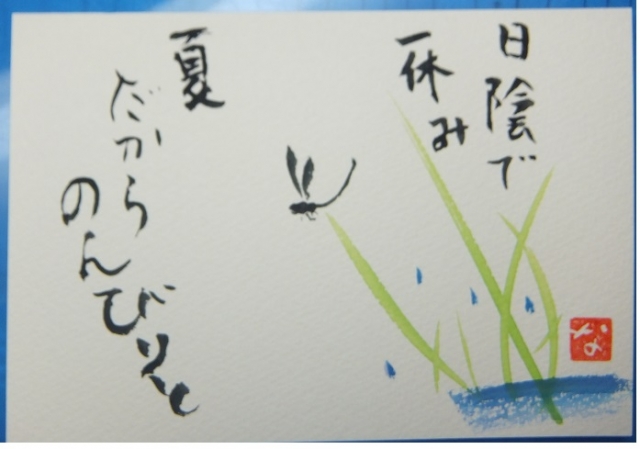 日陰で
一休み
夏
だから
のんびりと
な